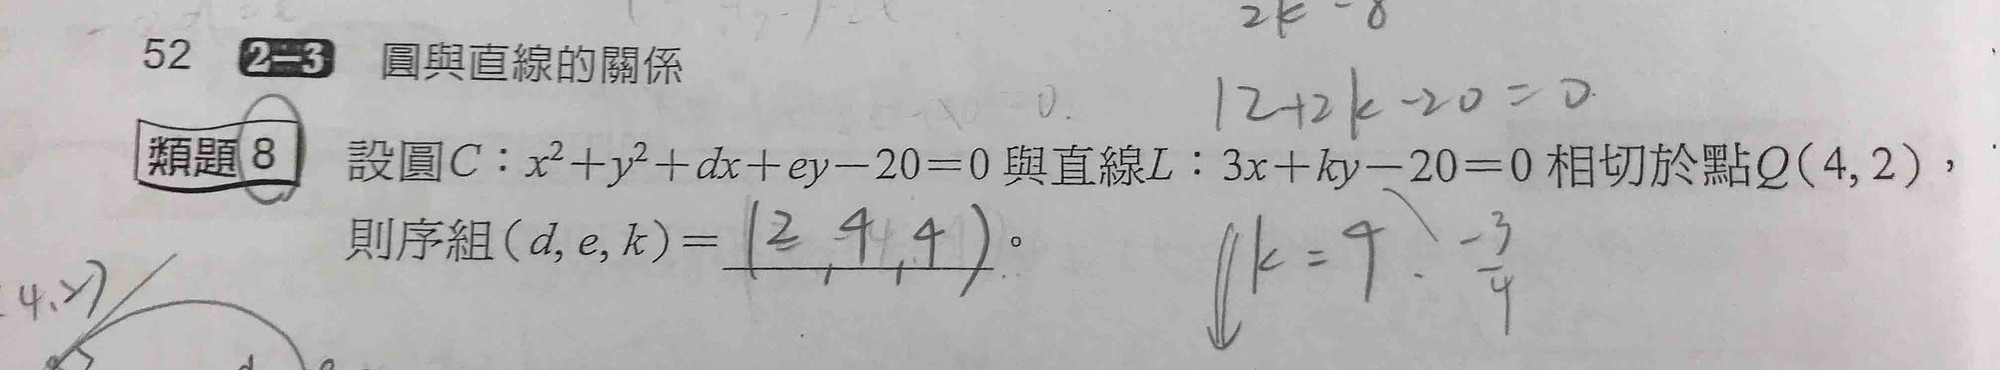 2k-8
52 2-3 圓與直線的關係
12+2k-20=0
類題8 設圓C:x²+y²+dx+ey-20=0與直線L:3x+ky-20=0相切於點Q(4, 2),
則序組(d, e, k)=(2,4,4)。
k=4 -3/4
4,2)